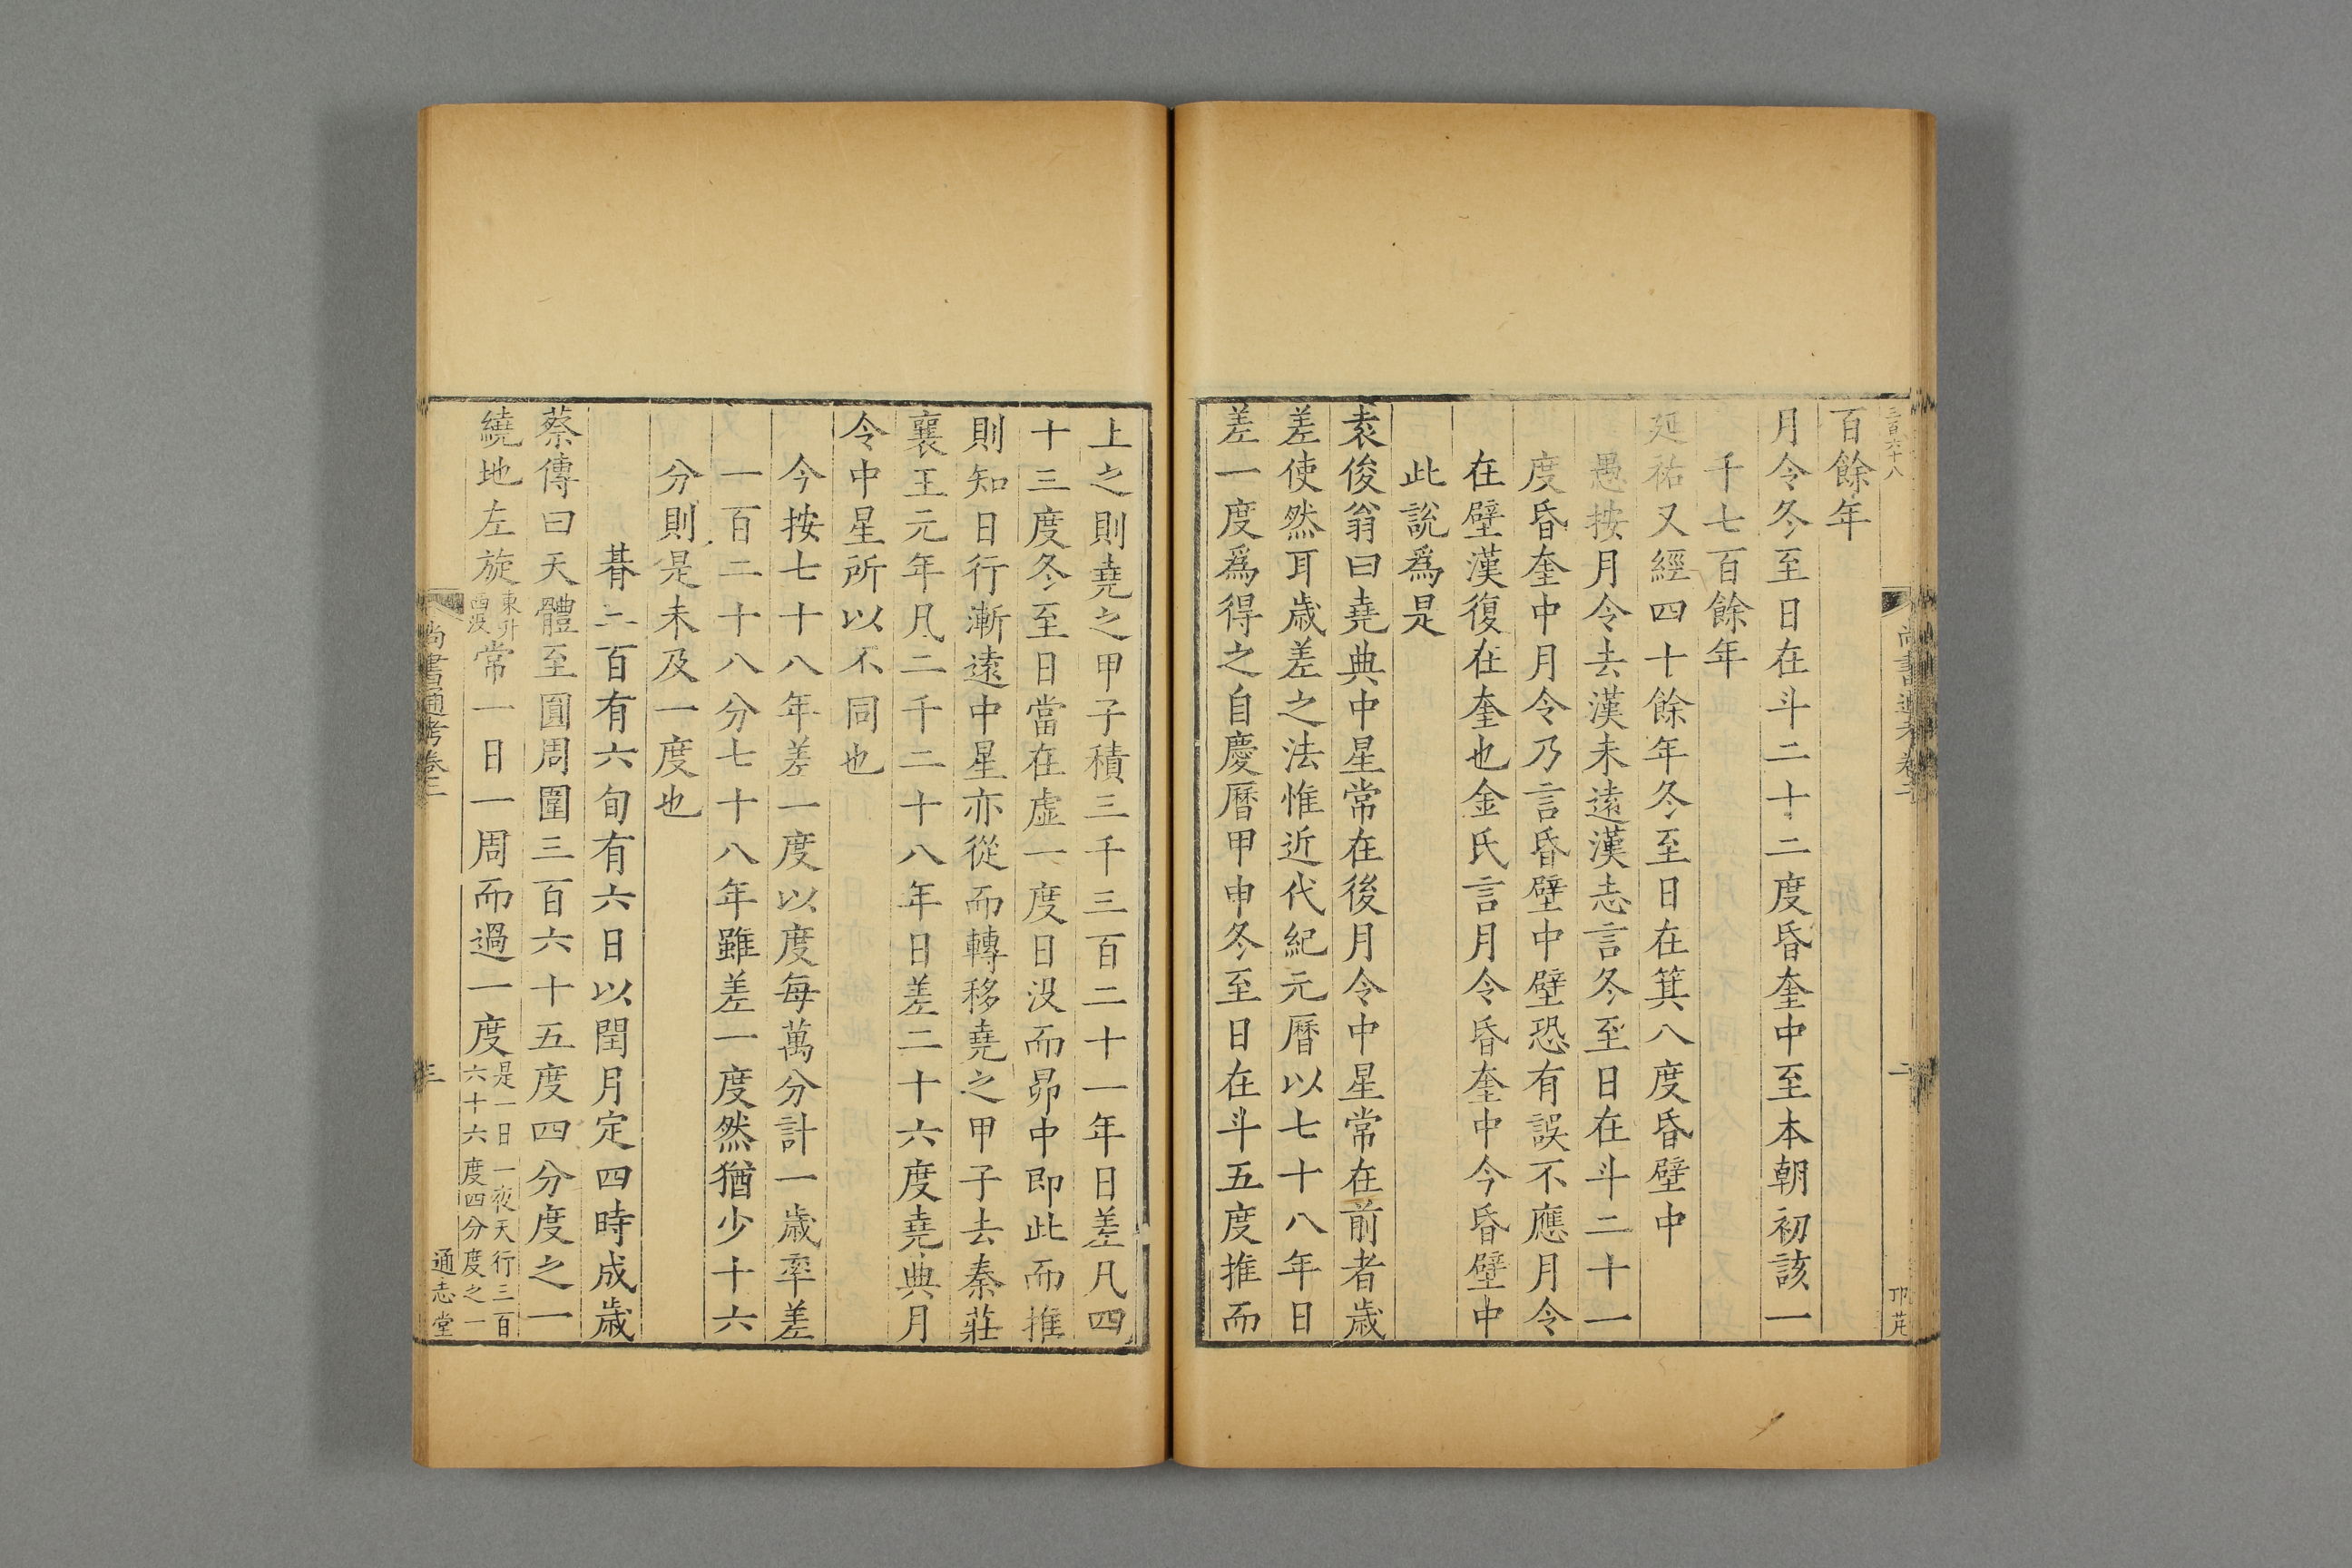 三百六十八
百餘年
月令冬至日在斗二十二度昏奎中至本朝初該一
千七百餘年
延祐又經四十餘年冬至日在箕八度昏壁中
愚按月令去漢未遠漢志言冬至日在斗二十一
度昏奎中月令乃言昏壁中壁恐有誤不應月令
在壁漢復在奎也金氏言月令昏奎中今昏壁中
此說爲是
袁俊翁曰堯典中星常在後月令中星常在前者歲
差使然耳歲差之法惟近代紀元曆以七十八年日
差一度爲得之自慶曆甲申冬至日在斗五度推而
上之則堯之甲子積三千三百二十一年日差凡四
十三度冬至日當在虛一度日没而昴中即此而推
則知日行漸遠中星亦從而轉移堯之甲子去秦莊
襄王元年凡二千二十八年日差二十六度堯典月
令中星所以不同也
今按七十八年差一度以度每萬分計一歲率差
一百二十八分七十八年雖差一度然猶少十六
分則是未及一度也
朞三百有六旬有六日以閏月定四時成歲
蔡傳曰天體至圓周圍三百六十五度四分度之一
繞地左旋東升西没常一日一周而過一度是一日一夜天行三百六十六度四分度之一
尚書通考卷二
三
通志堂